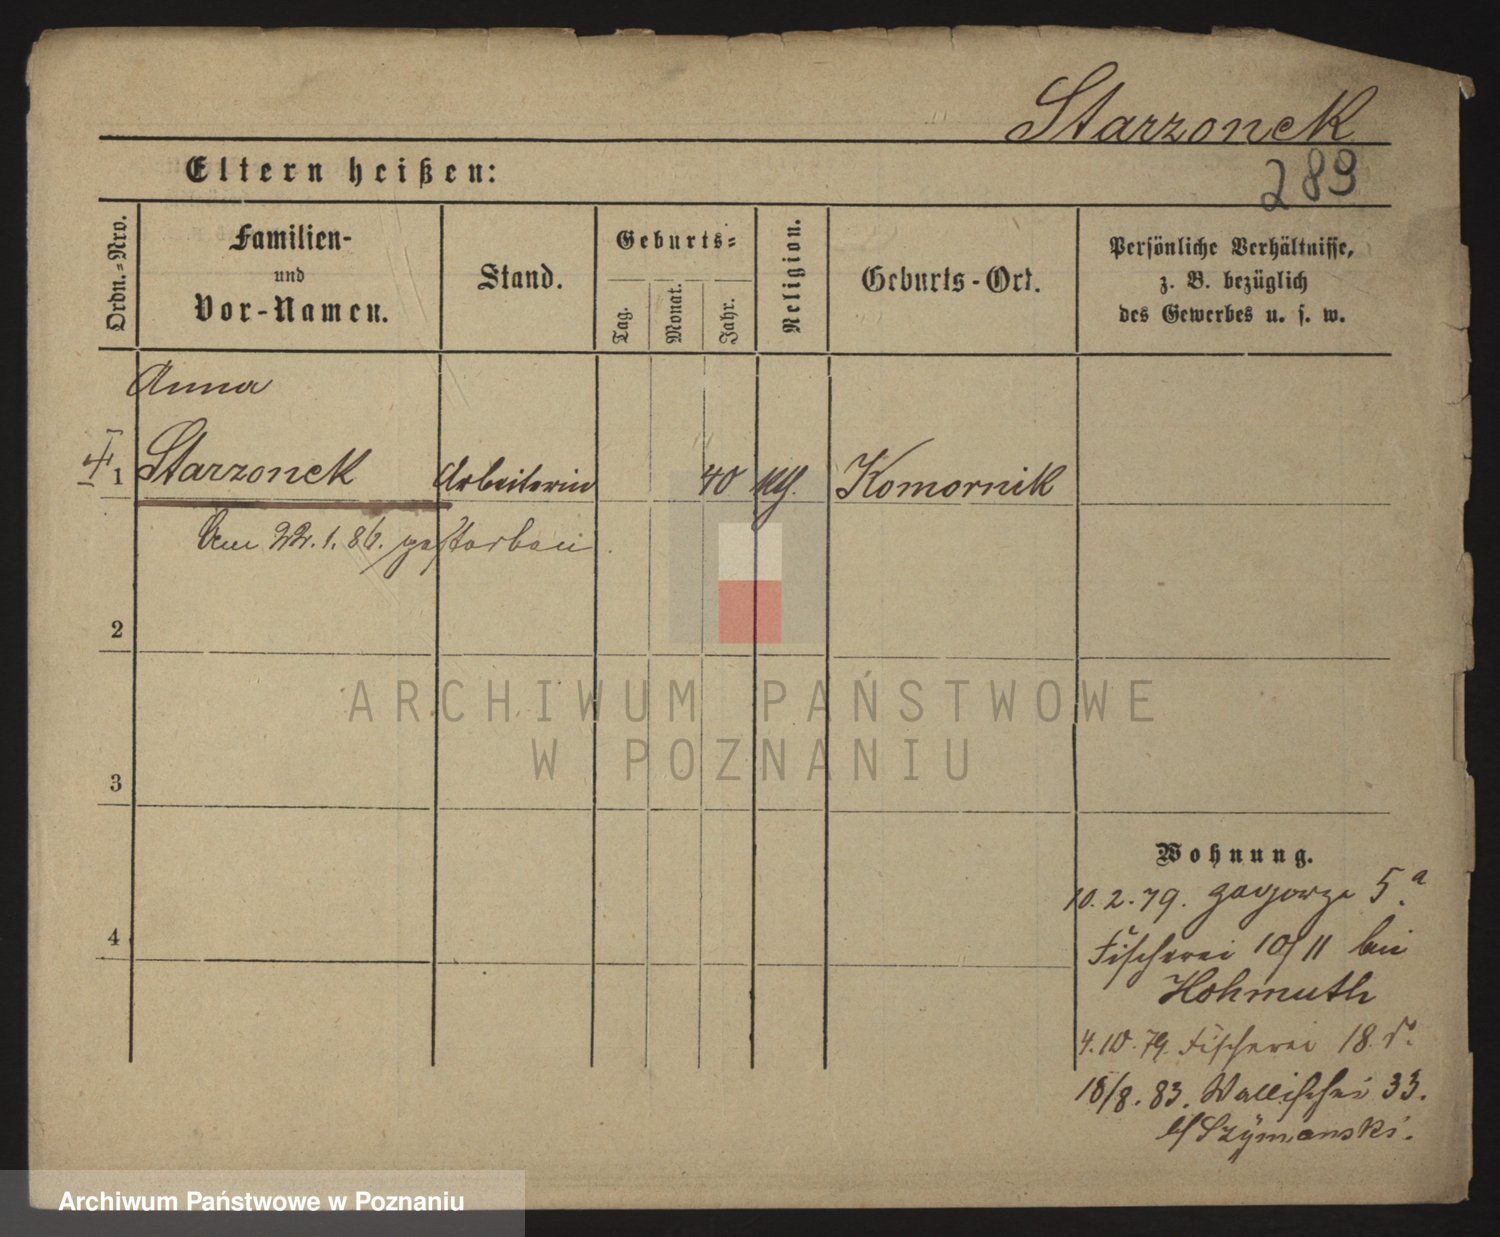 Starzonek
289
Eltern heißen:
Ordn.-Nro.
Familien-
und
Vor-Namen.
Stand.
Geburts-
Tag.
Monat.
Jahr.
Religion.
Geburts-Ort.
Persönliche Verhältnisse,
z. B. bezüglich
des Gewerbes u. s. w.
Anna
1 Starzonek Arbeiterin 40 Komornik
Am 22.1.86. gestorben.
2
3
4
ARCHIWUM PAŃSTWOWE
W POZNANIU
Wohnung.
10.2.79. Zagorze 5.a
Fischerei 10/11 bei
Hohmuth
4.10.79. Fischerei 18.
18/8.83. Wallischei 33.
b/Szymanski.
Archiwum Państwowe w Poznaniu